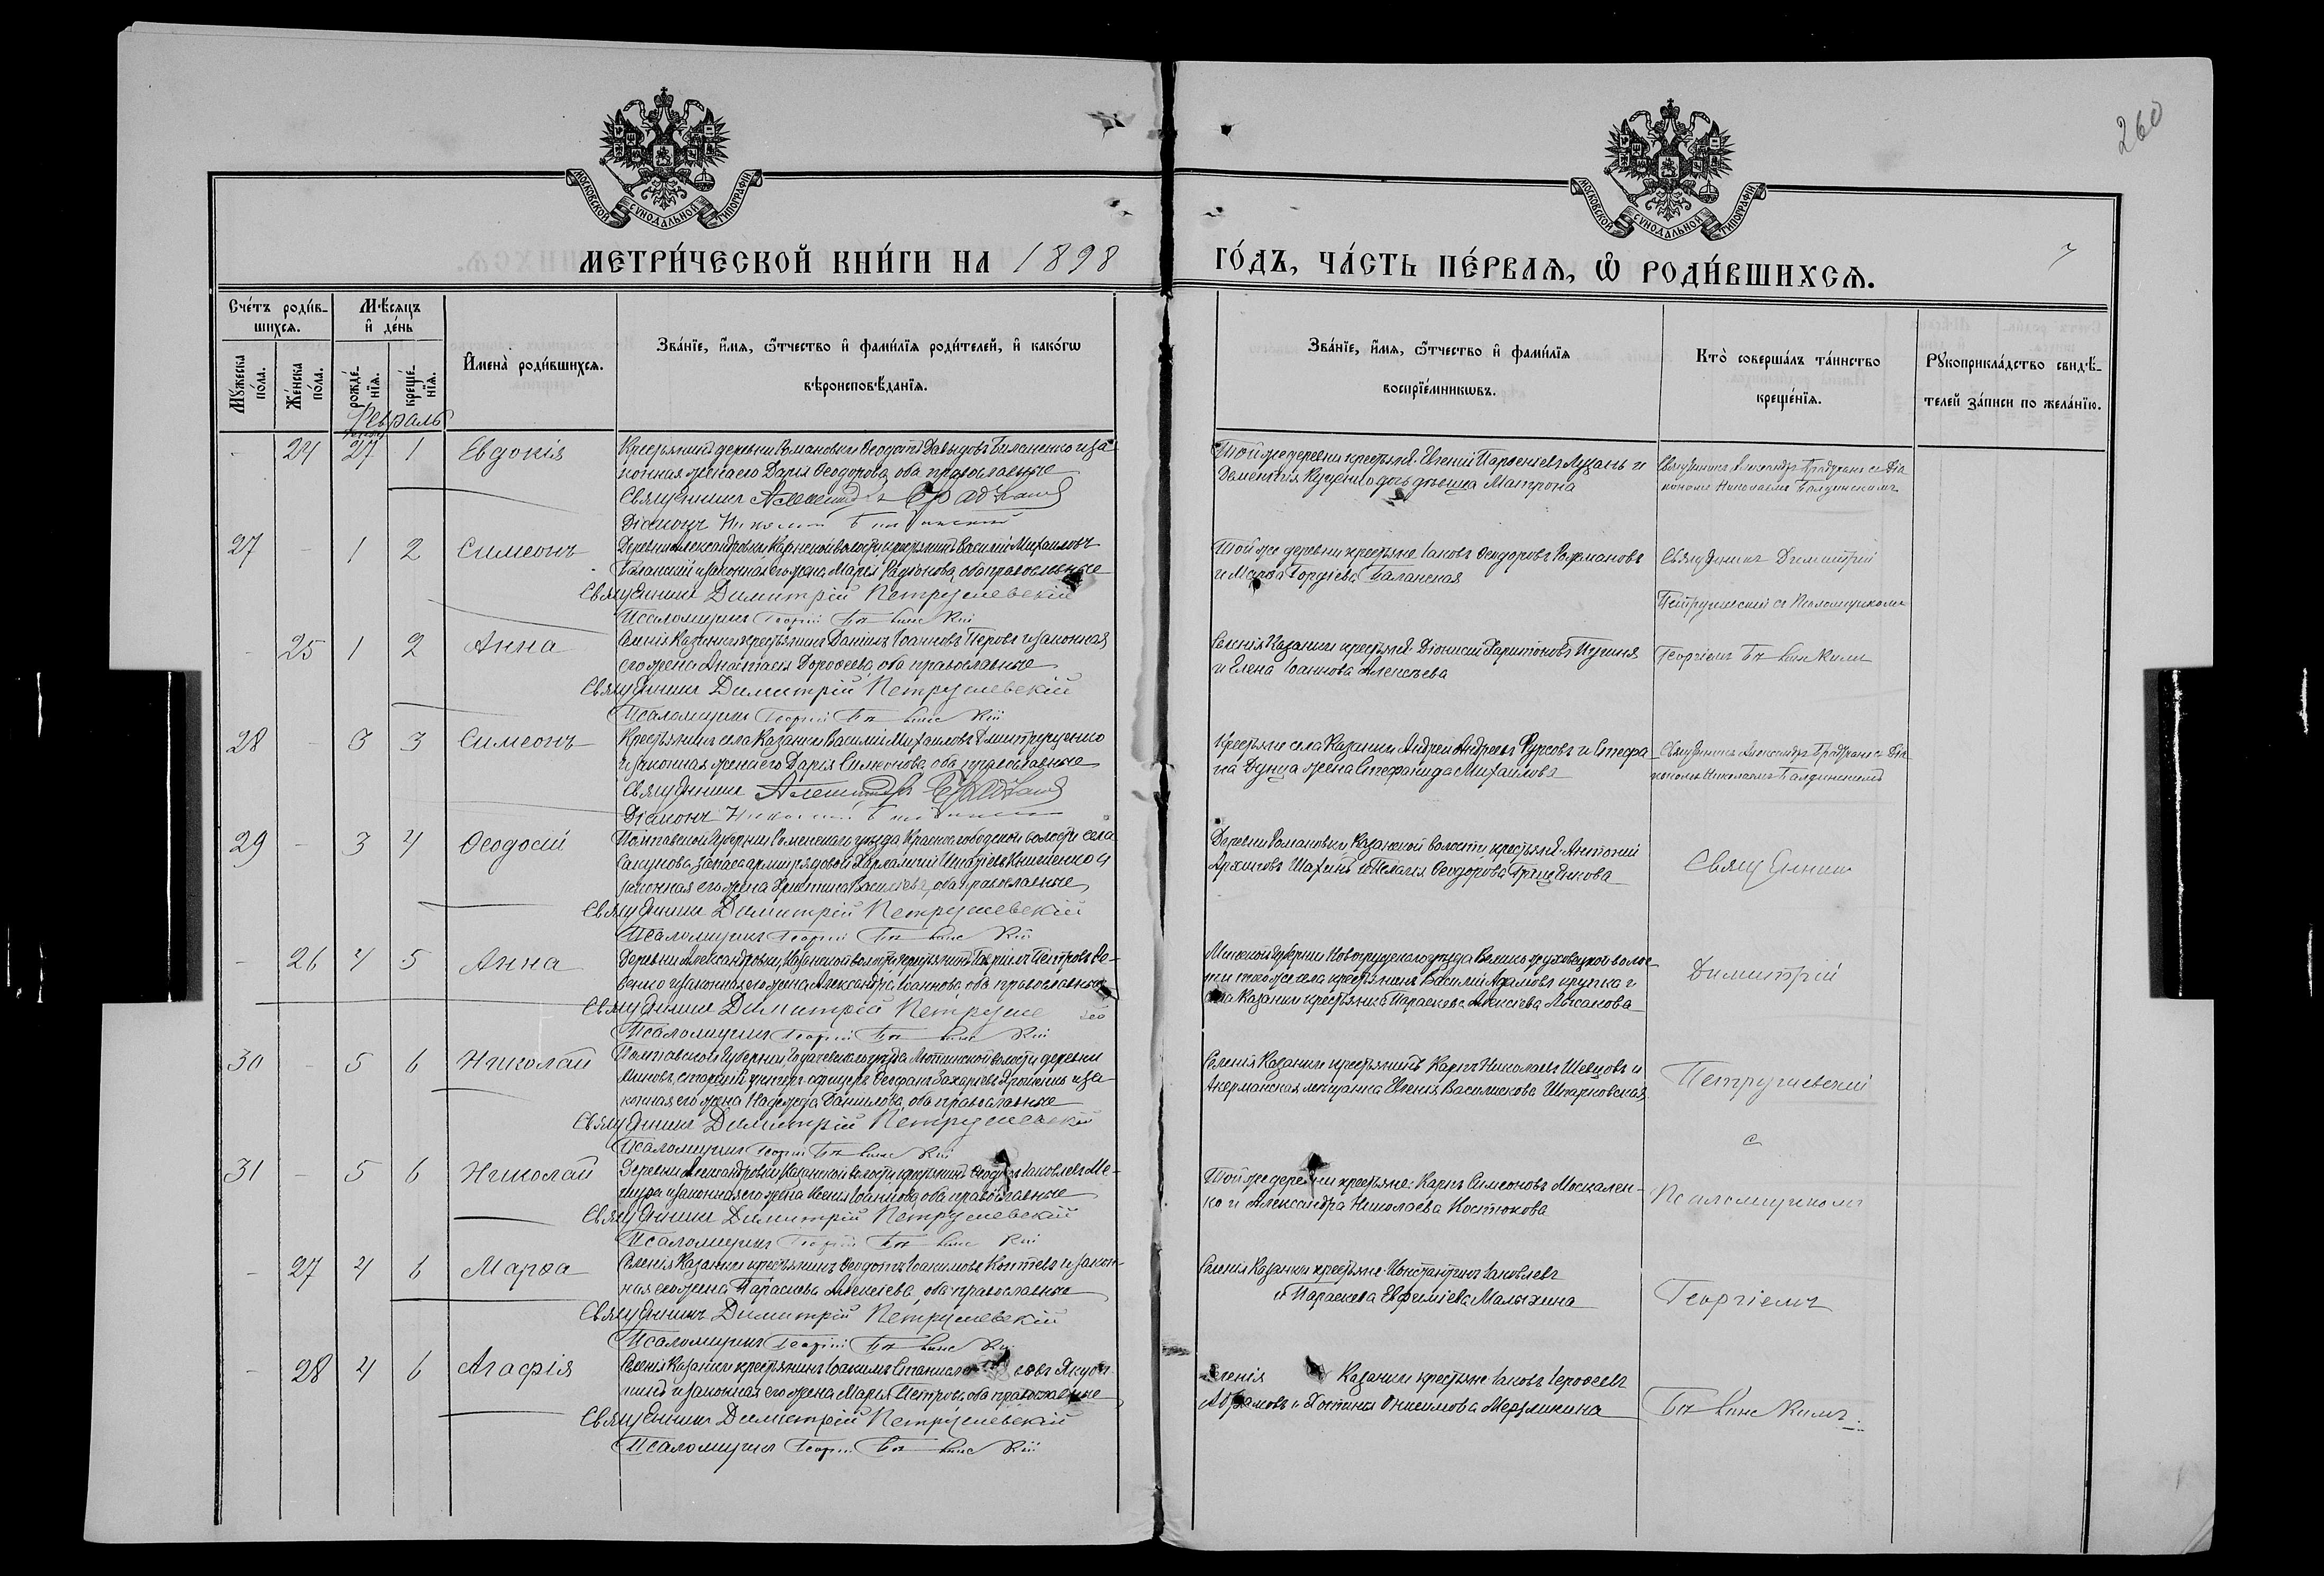 260
МОСКОВСКОЙ СѴНОДАЛЬНОЙ ТИПОГРАФІИ
МОСКОВСКОЙ СѴНОДАЛЬНОЙ ТИПОГРАФІИ
МЕТРИ́ЧЕСКОЙ КНИ́ГИ НА 1898
ГО́ДЪ, ЧА́СТЬ ПЕ́РВАѦ, Ѽ РОДИ́ВШИХСѦ.
7
Сче́тъ роди́в-
шихсѧ.
Мꙋ́жеска
по́ла.
Же́нска
по́ла.
Мѣ́сѧцъ
и҆ де́нь
рожде́-
нїѧ.
креще́-
нїѧ.
И҆мена̀ роди́вшихсѧ.
Зва́нїе, и҆́мѧ, ѻ҆́тчество и҆ фами́лїѧ роди́телей, и҆ како́гѡ
вѣроисповѣ́данїѧ.
Зва́нїе, и҆́мѧ, ѻ҆́тчество и҆ фами́лїѧ
воспрїе́мникѡвъ.
Кто̀ соверша́лъ та́инство
креще́нїѧ.
Рꙋкоприкла́дство свидѣ́-
телей за́писи по жела́нїю.
Февраль
- 24 27 1 Евдокія
Крестьянинъ деревни Романовки Ѳеодотъ Давыдовъ Биланенко и за-
конная жена его Дарія Ѳеодорова, оба православные
Священникъ Александръ
Діаконъ Николай
Той же деревни крестьяне: Евгеній Парѳеніевъ Лузань и
дочь Матрона
Священникъ Александръ с Діа-
кономъ Николаемъ
27 - 1 2 Симеонъ
Деревни Александровки Казанской волости крестьянинъ Василій Михаиловъ
Баланскій и законная его жена Марія Родіонова, оба православные
Священникъ Димитрій Петрушевскій
Псаломщикъ Георгій
Той же деревни крестьяне Іаковъ Ѳеодоровъ Рахмановъ
и Марѳа Гордіева Баланская
Священникъ Димитрій
Петрушевскій съ Псаломщикомъ
- 25 1 2 Анна
Селенія Казанки крестьянинъ Даніилъ Іоанновъ Перовъ и законная
его жена Анастасія Дороѳеева, оба православные
Священникъ Димитрій Петрушевскій
Псаломщикъ Георгій
Селенія Казанки крестьяне: Діонисій Харитоновъ
и Елена Іоаннова Алексѣева
Георгіемъ
28 - 3 3 Симеонъ
Крестьянинъ села Казанки Василій Михаиловъ Дмитрущенко
и законная жена его Дарія Симеонова, оба православные
Священникъ Александръ
Діаконъ Николай
Крестьяне села Казанки Андрей Андреевъ Фурсовъ и Стефа-
на Дунца жена Стефанида Михаилова
Священникъ Александръ с Діа-
кономъ Николаемъ
29 - 3 4 Ѳеодосій
Полтавской губерніи Роменскаго уѣзда Красногородской волости села
запаса арміи рядовой и
законная его жена Христина Васильева, оба православные
Священникъ Димитрій Петрушевскій
Псаломщикъ Георгій
Деревни Романовки, Казанской волости крестьяне: Антоній
Архиповъ и Пелагія Ѳеодорова Грищенкова
Священникъ
- 26 4 5 Анна
Деревни Александровки, Казанской волости крестьянинъ Гавріилъ Петровъ
и законная его жена Александра Іоаннова, оба православные
Священникъ Димитрій
Псаломщикъ Георгій
Минской губерніи Новогрудскаго уѣзда волос-
ти того же села крестьянинъ Василій Адамовъ Крупка и
села Казанки крестьянка Параскева Алексѣева Лысакова
Димитрій
30 - 5 6 Николай
Полтавской губерніи, Гадячскаго уѣзда Лютенской волости деревни
старшій унтеръ-офицеръ Ѳеофанъ Захаріевъ и за-
конная его жена Надежда Данилова, оба православные
Священникъ Димитрій Петрушевскій
Псаломщикъ Георгій
Селенія Казанки крестьянинъ Карпъ Николаевъ Шевцовъ и
Акерманская мещанка Евгенія
Петрушевскій
с
31 - 5 6 Николай
Деревни Александровки, Казанской волости крестьянинъ Іаковлевъ Ме-
и законная его жена Ксенія Іоаннова, оба православные
Священникъ Димитрій Петрушевскій
Псаломщикъ Георгій
Той же деревни крестьяне: Карпъ Симеоновъ Москален-
ко и Александра Николаева Костюкова
Псаломщикомъ
- 27 4 6 Марѳа
Селенія Казанки крестьянинъ Ѳеодотъ Іоакимовъ Коптевъ и закон-
ная его жена Параскева Алексѣева, оба православные
Священникъ Димитрій Петрушевскій
Псаломщикъ Георгій
Селенія Казанки крестьяне Константинъ Іаковлевъ
и Параскева Евфиміева Малыхина
Георгіемъ
- 28 4 6 Агафія
Селенія Казанки крестьянинъ Іоакимъ
и законная его жена Марія Петрова, оба православные
Священникъ Димитрій Петрушевскій
Псаломщикъ Георгій
Селенія Казанки крестьяне Іаковъ Іероѳеевъ
Абрамовъ и Онисимова Мерзликина